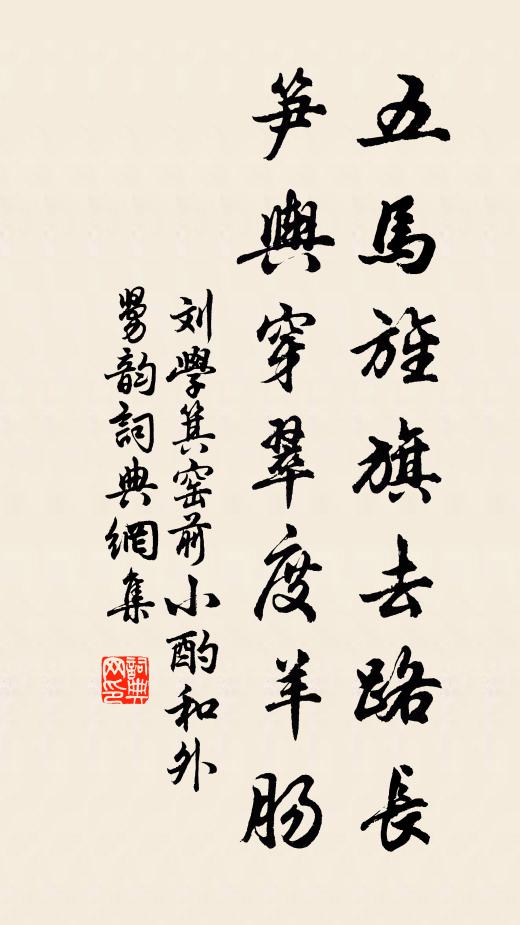 五馬旌旗去路長
笋輿穿翠度羊肠
刘學箕窑前小酌和外
舅韵詞典網集
詞典
网印